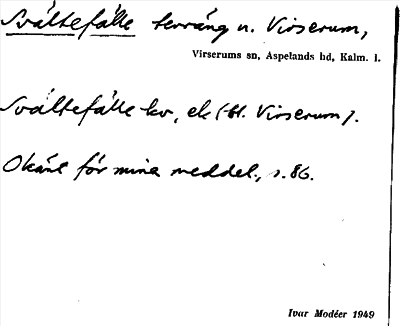 Svältefälle terräng n. Virserum,
Virserums sn, Aspelands hd, Kalm. l.
Svältefälle kv, ek (bl. Virserum).
Okänt för mina meddel., s. 86.
Ivar Modéer 1949